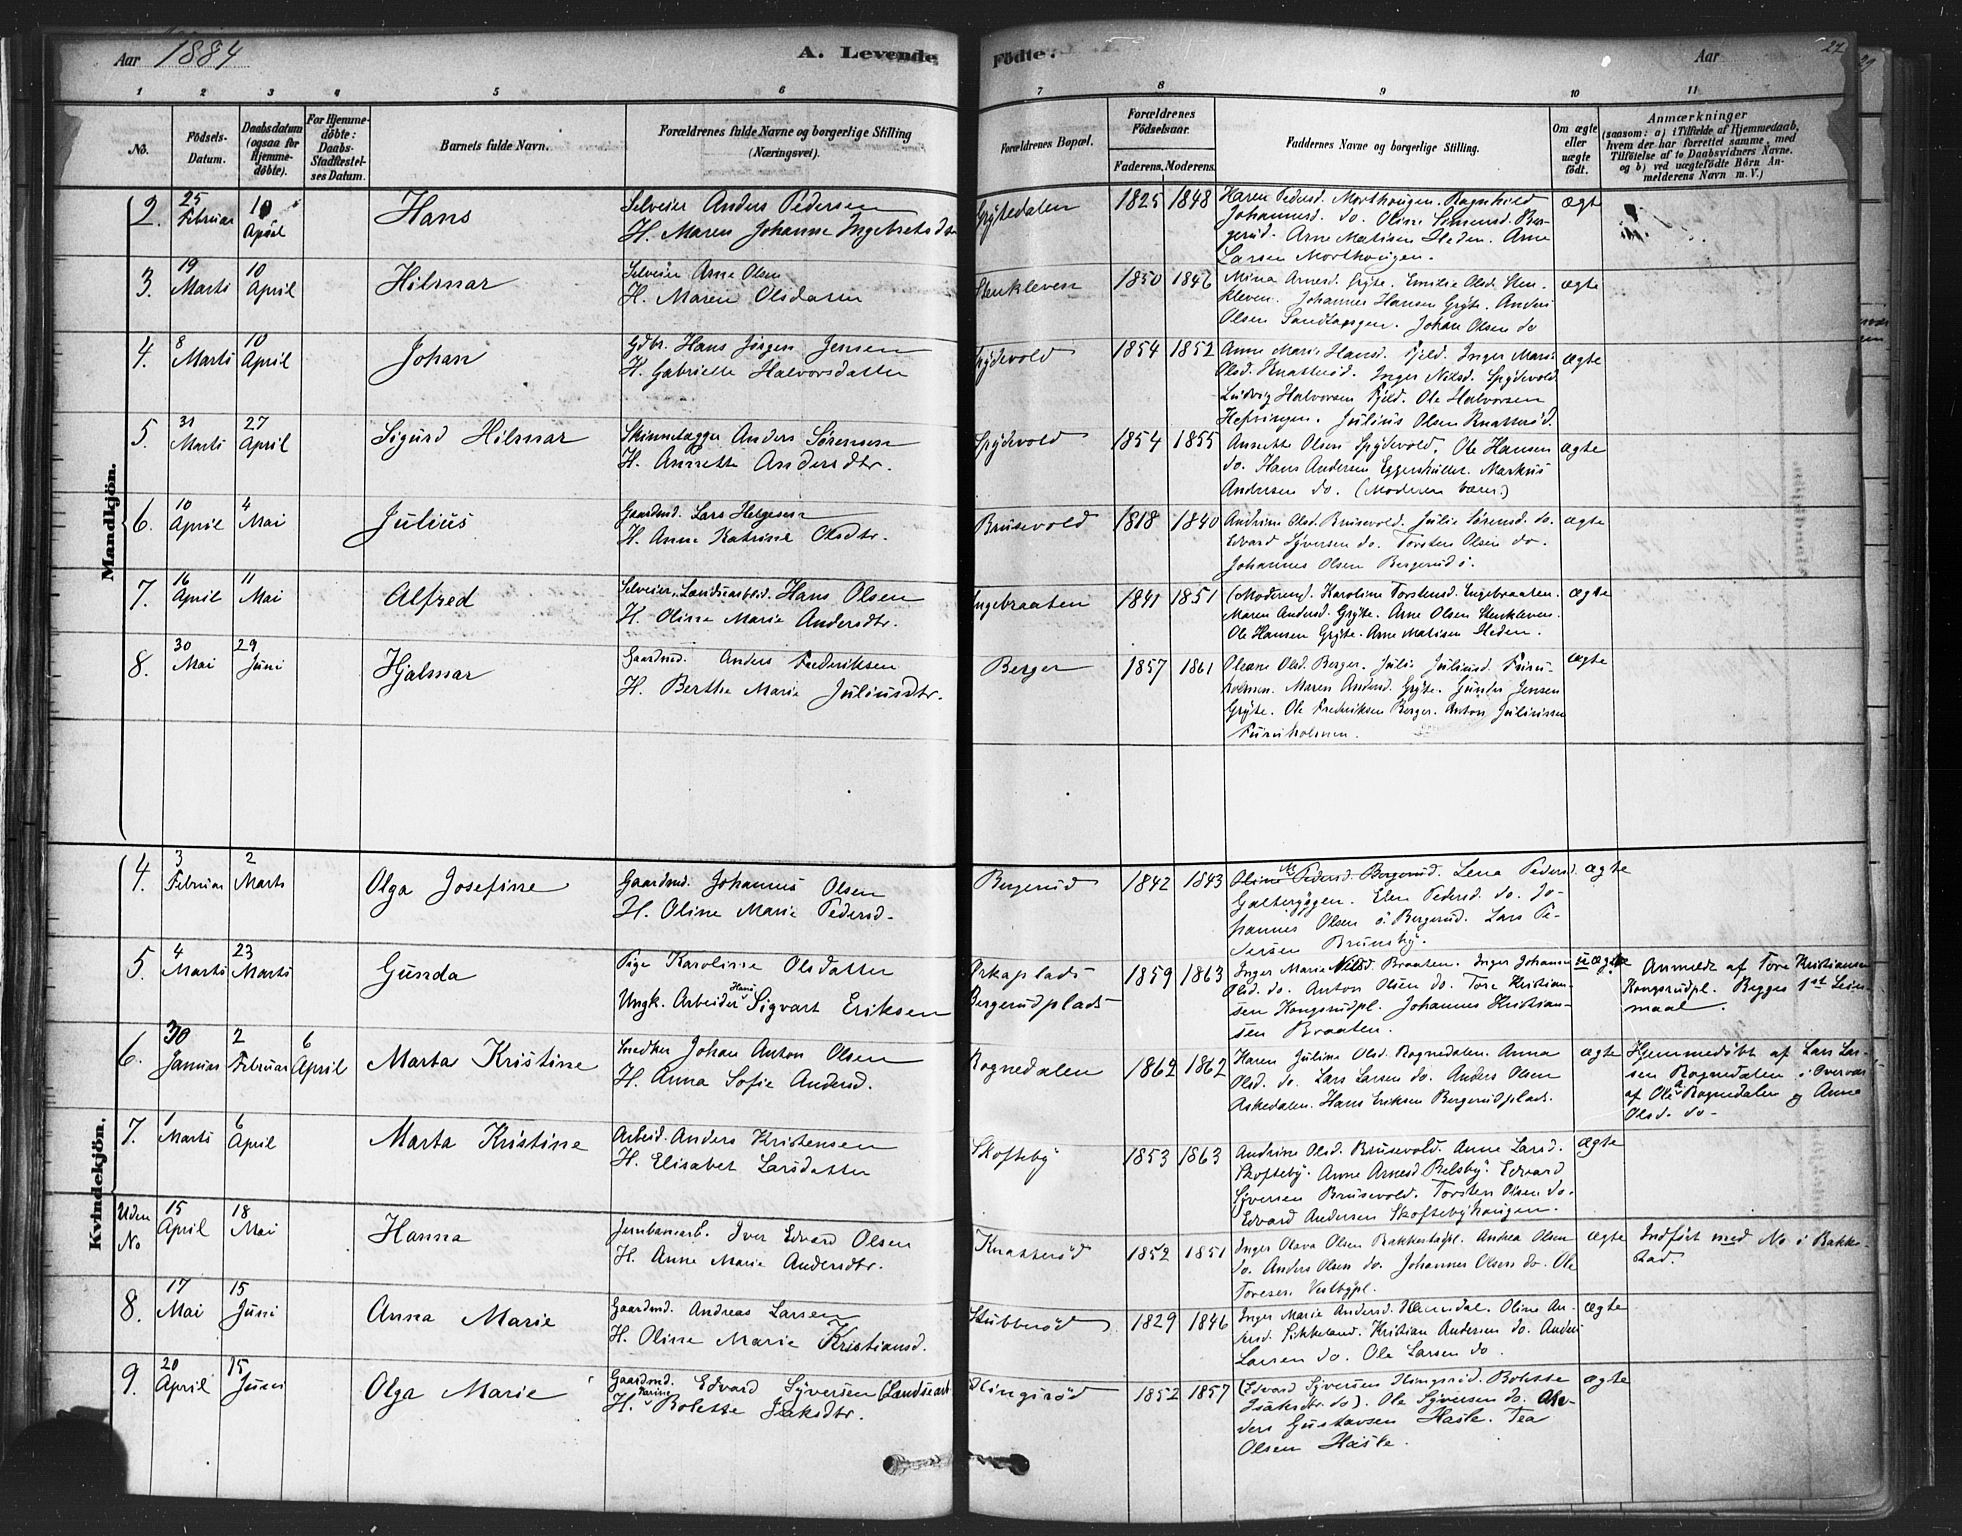 Aar 1884
A. Levende
Födte.
Aar
27
29
1 2 3 4 5 6 7 8 9 10 11
No.
Födsels-Datum.
Daabsdatum (ogsaa for Hjemme-döbte).
For Hjemme-döbte: Daabs-Stadfæstel-ses Datum.
Barnets fulde Navn.
Forældrenes fulde Navne og borgerlige Stilling (Næringsvei).
Forældrenes Bopæl.
Forældrenes Födselsaar.
Faderens. Moderens.
Faddernes Navne og borgerlige Stilling.
Om ægte eller uægte födt.
Anmærkninger
(saasom: a) i Tilfælde af Hjemmedaab, hvem der har forrettet samme, med Tilföielse af to Daabsvidners Navne. og b) ved uægtefödte Börn Anmelderens Navn m. V.)
Mandkjön.
2. 25 Februar 10 April Hans
Selveier Anders Pedersen
H. Maren Johanne Ingebretsdtr
Grytedalen 1825 1848
Karen Pedersd. Morthougen. Ragnhild
Johannesd. do. Oline Simensd. Ber-
gerud. Arne Matisen Heden. Arne
Larsen Morthougen.
ægt
3. 19 Marts 10 April Hilmar
Selveier Arne Olsen
H. Maren Olsdatter
Stenkleven 1850 1846
Mina Arnesd. Gryte. Emilie Olsd. Sten-
kleven. Johannes Hansen Gryte. Anders
Olsen Sandtangen. Johan Olsen do
ægte
4. 8 Marts 10 April Johan
Gdbr. Hans Jørgen Jensen
H. Gabrielle Halvorsdatter
Spydevold 1854 1852
Anne Marie Hansd. Fjeld. Inger Marie
Olsd. Knatterød. Inger Nilsd. Spydevold
Ludvig Halvorsen Fjeld. Ole Halvorsen
Høfringen. Julius Olsen Knatterød.
ægte
5. 31 Marts 27 April Sigurd Hilmar
Skinnelægger Anders Sørensen
H. Annette Andersdtr.
Spydevold 1854 1855
Annette Olsen Spydevold. Ole Hansen
do. Hans Andersen Eggershullet. Markus
Andersen do. (Moderen bærer.)
ægte
6. 10 April 4 Mai Julius
Gaardmd. Lars Helgesen
H. Anne Katrine Olsdtr.
Brusevold 1818 1840
Andrine Olsd. Brusevold. Julie Sørensd. do.
Edvard Syversen do. Torsten Olsen do.
Johannes Olsen Bergerud ö.
ægte
7. 16 April 11 Mai Alfred
Selveier, Landsarbeid. Hans Olsen
H. Oline Marie Andersdtr.
Ingebraaten 1841 1851
(Moderen). Karoline Torstensd. Engebraaten.
Maren Andersd. Gryte. Arne Olsen Stenkleven.
Ole Hansen Gryte. Arne Matisen Heden.
ægte
8. 30 Mai 29 Juni Hjalmar
Gaardmd. Anders Frederiksen
H. Berthe Marie Juliusdtr.
Berger 1857 1861
Oleane Olsd. Berger. Julie Juliusd. Furu-
holmen. Maren Andersd. Gryte. Gunder Jensen
Gryte. Ole Fredriksen Berger. Anton Juliussen
Furuholmen.
ægte
Kvindekjön.
4. 3 Februar 2 Marts Olga Josefine
Gaardmd. Johannes Olsen
H. Oline Marie Pedersd.
Bergerud 1842 1843
Oline M. Pedersd. Bergerud. Lena Pedersd.
Galteryggen. Elen Pedersd. do. Jo-
hannes Olsen ö Bergerud. Lars Pe-
tersen Brunsby.
ægte
5. 4 Marts 23 Marts Gunda
Pige Karoline Olsdatter
Ungk. Arbeider Hans Sigvart Eriksen
Askeplads
Bergerudplads 1859 1863
Inger Marie Nilsd. Braaten. Inger Johanne
Olsd. do. Anton Olsen do. Tore Kristian-
sen Kongsrudpl. Johannes Kristian-
sen Braaten.
uægte
Anmeldt af Tore Kristiansen
Kongsrudpl. Begges 1st Leier-
maal.
6. 30 Januar 2 Februar 6 April Marta Kristine
Snedker Johan Anton Olsen
H. Anna Sofie Andersd.
Rognedalen 1862 1862
Karen Juline Olsd. Rognedalen. Anna
Olsd. do. Lars Larsen do. Anders Olsen
Askedalen. Hans Eriksen Bergerudplads.
ægte
Hjemmedøbt af Lars Lar-
sen Rognedalen i Overvær
af Ole A. Rognedalen og Anne
Olsd. do.
7. 1 Marts 6 April Marta Kristine
Arbeid. Anders Kristensen
H. Elisabet Larsdatter
Skofteby 1853 1863
Andrine Olsd. Brusevold. Anne Larsd.
Skofteby. Anne Arnesd. Belsby. Edvard
Syversen Brusevold. Torsten Olsen do.
Edvard Andersen Skoftebyhaugen.
ægte
Uden No 15 April 18 Mai Hanna
Jernbanearb. Iver Edvard Olsen
H. Anne Marie Andersdtr.
Knatterød 1852 1851
Inger Olava Olsen Bakkestadpl. Andrea Olsen
do. Anders Olsen do. Johannes Olsen do. Ole
Toresen Vestbypl.
ægte
Indført med No i Bakke-
stad.
8. 17 Mai 15 Juni Anna Marie
Gaardmd. Andreas Larsen
H. Oline Marie Kristiansd.
Stubberød 1829 1846
Inger Marie Andersd. Ramdal. Oline An-
dersd. Sikkeland. Kristian Andersen do. Anders
Larsen do. Ole Larsen do.
ægte
9. 20 April 15 Juni Olga Marie
Gaardmd. Edvard Syversen (Landsearb
H. Karine Bolette Isaksdtr.
Hingsrød 1852 1857
(Edvard Syversen Hingsrød. Bolette
Isaksdtr. do). Ole Syversen do. An-
ders Gustavsen Hasle. Tea
Olsen Hasle.
ægte